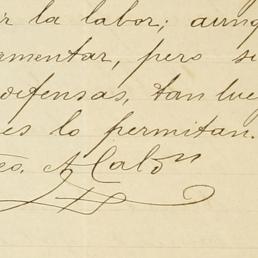 la labor; aunq
mentar, pero si
defensas, tan lue
es lo permitan.